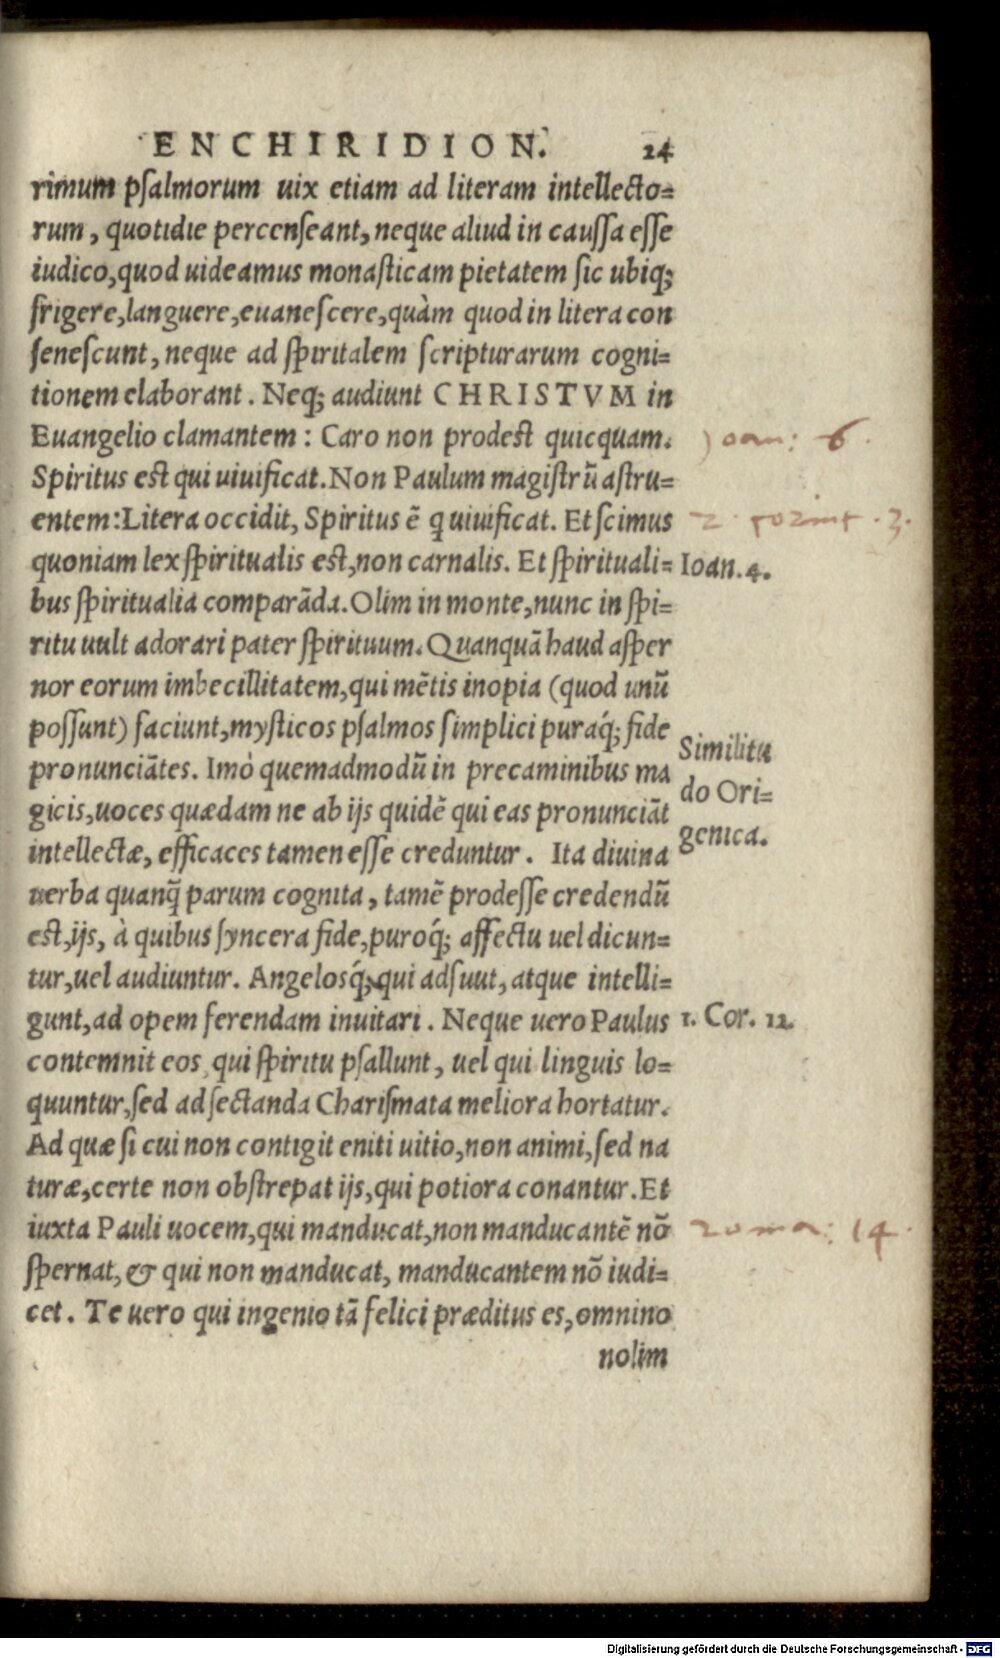 ENCHIRIDION. 24
rimum psalmorum uix etiam ad literam intellecto=
rum, quotidie percenseant, neque aliud in caussa esse
iudico, quod uideamus monasticam pietatem sic ubiq;
frigere, languere, euanescere, quàm quod in litera con
senescunt, neque ad spiritalem scripturarum cogni=
tionem elaborant. Neq; audiunt CHRISTVM in
Euangelio clamantem: Caro non prodest quicquam.
Joan: 6.
Spiritus est qui uiuificat. Non Paulum magistrũ astru=
entem: Litera occidit, Spiritus ẽ q uiuificat. Et scimus
2. corint. 3.
quoniam lex spiritualis est, non carnalis. Et spirituali=
Ioan. 4.
bus spiritualia comparãda. Olim in monte, nunc in spi=
ritu uult adorari pater spirituum. Quanquã haud asper
nor eorum imbecillitatem, qui mẽtis inopia (quod unũ
possunt) faciunt, mysticos psalmos simplici puraq́; fide
pronunciãtes. Imò quemadmodũ in precaminibus ma
Similitu
do Ori=
genica.
gicis, uoces quædam ne ab ijs quidẽ qui eas pronunciãt
intellectæ, efficaces tamen esse creduntur. Ita diuina
uerba quanq̃ parum cognita, tamẽ prodesse credendũ
est, ijs, à quibus syncera fide, puroq́; affectu uel dicun=
tur, uel audiuntur. Angelosq́; qui adsuut, atque intelli=
gunt, ad opem ferendam inuitari. Neque uero Paulus
1. Cor. 12.
contemnit eos, qui spiritu psallunt, uel qui linguis lo=
quuntur, sed ad sectanda Charismata meliora hortatur.
Ad quæ si cui non contigit eniti uitio, non animi, sed na
turæ, certe non obstrepat ijs, qui potiora conantur. Et
iuxta Pauli uocem, qui manducat, non manducantẽ nõ
roma: 14.
spernat, & qui non manducat, manducantem nõ iudi=
cet. Te uero qui ingenio tã felici præditus es, omnino
nolim
Digitalisierung gefördert durch die Deutsche Forschungsgemeinschaft - DFG